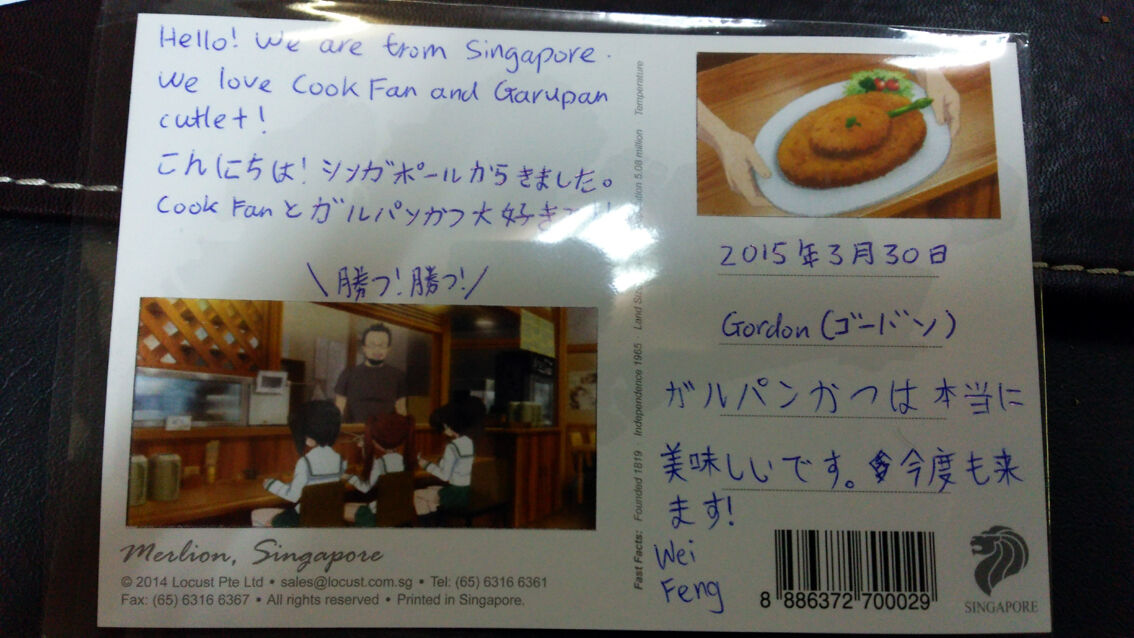 Hello! We are from Singapore.
We love Cook Fan and Garupan
cutlet!
こんにちは! シンガポールからきました。
Cook Fanとガルパンかつ大好きです!
\勝つ!勝つ!/
Merlion, Singapore
© 2014 Locust Pte Ltd • sales@locust.com.sg • Tel: (65) 6316 6361
Fax: (65) 6316 6367 • All rights reserved • Printed in Singapore.
Fast Facts: Founded 1819 Independence 1965 Land 5.08 million Temperature
2015年3月30日
Gordon(ゴーバン)
ガルパンかつは本当に
美味しいです。今度も来
ます!
Wei
Feng
8 886372 700029
SINGAPORE